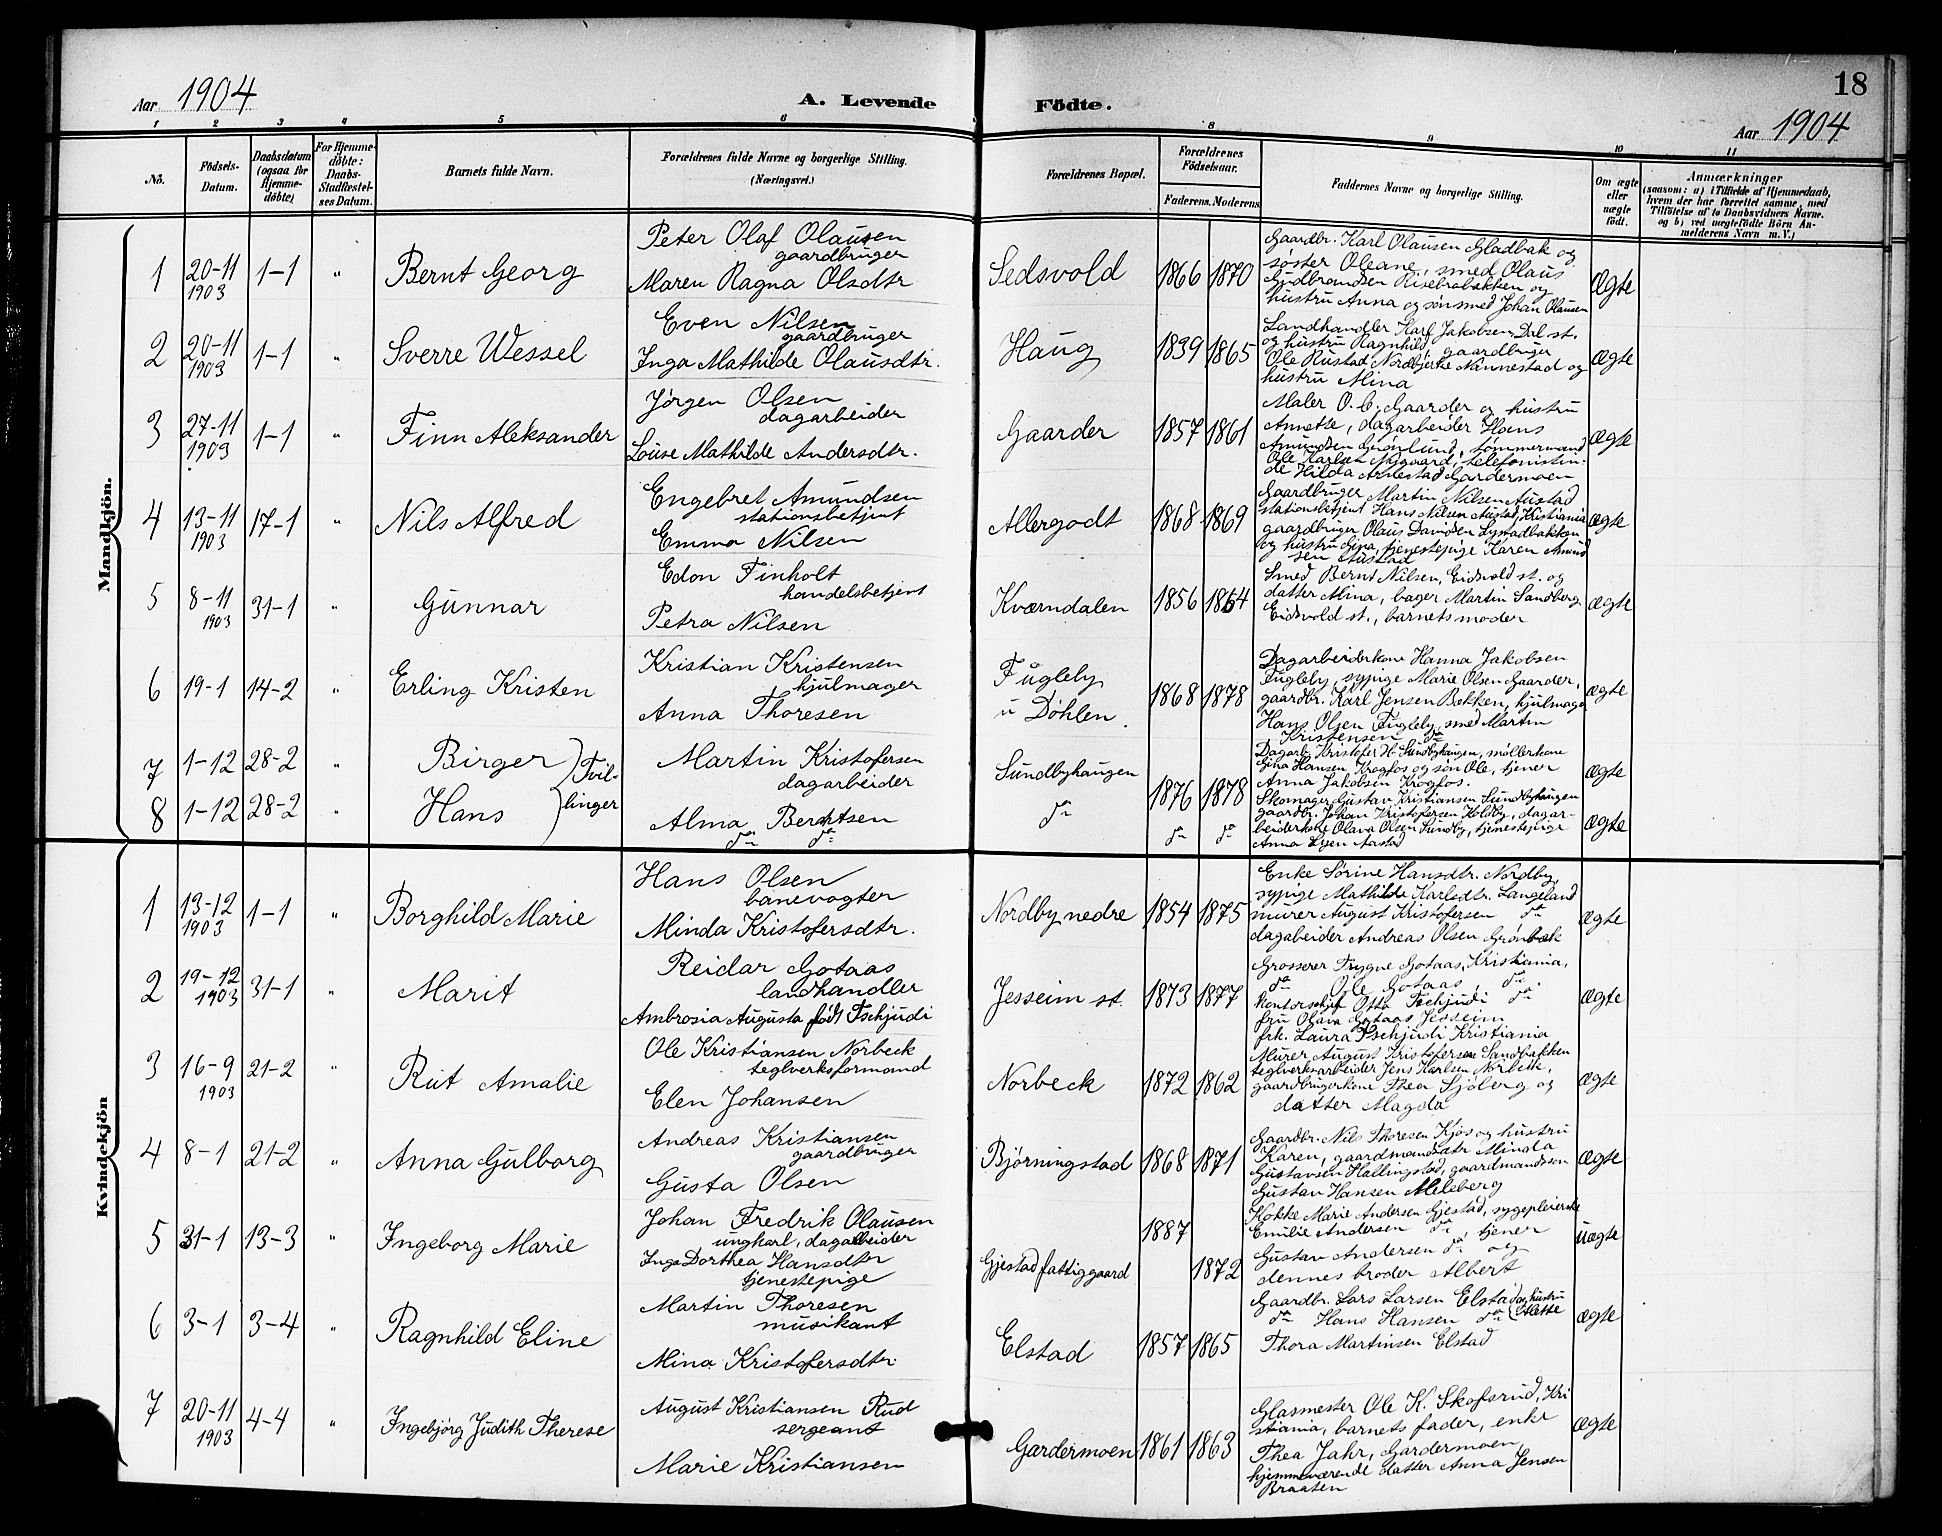 18
Aar 1904 A. Levende Födte. Aar 1904
1 2 3 4 5 6 8 9 10 11
No.
Födsels-Datum.
Daabsdatum (ogsaa for Hjemme-döbte).
For Hjemme-döbte: Daabs-Stadfæstel-ses Datum.
Barnets fulde Navn.
Forældrenes fulde Navne og borgerlige Stilling.
(Næringsvei.)
Forældrenes Bopæl.
Forældrenes Födselsaar.
Faderens. Moderens.
Faddernes Navne og borgerlige Stilling.
Om ægte eller uægte födt.
Anmærkninger
(saasom: a) i Tilfælde af Hjemmedaab,
hvem der har forrettet samme, med
Tilföielse af to Daabsvidners Navne.
og b) ved uægtefödte Börn An-
melderens Navn m. V.)
Mandkjön.
1 20-11 1903 1-1 " Bernt Georg
Peter Olaf Olausen
gaardbruger
Maren Ragna Olsdtr
Sedsvold 1866 1870
Gaardbr. Karl Olausen Gladbak og
søster Oleane, smed Olaus
Gudbrandsen Risebrobakken og
hustru Anna og søn smed Johan Olausen
Ægte
2 20-11 1903 1-1 " Sverre Wessel
Even Nilsen
gaardbruger
Inga Mathilde Olausdtr.
Haug 1839 1865
Landhandler Karl Jakobsen, Dal st.
og hustru Ragnhild, gaardbruger
Ole Rustad Nordbjerke Nannestad og
hustru Mina
Ægte
3 27-11 1903 1-1 " Finn Aleksander
Jørgen Olsen
dagarbeider
Louise Mathilde Andersdtr.
Gaarder 1857 1861
Maler O. C. Gaarder og hustru
Annette, dagarbeider Hans
Amundsen Grønlund, tømmermand
Ole Karlsen Nygaard, telefonistin-
de Hilda Arnestad Gardermoen
Ægte
4 13-11 1903 17-1 " Nils Alfred
Engebret Amundsen
stationsbetjent
Emma Nilsen
Allergodt 1868 1869
Gaardbruger Martin Nilsen Austad
stationsbetjent Hans Nilsen Austad, Kristiania
gaardbruger Olaus Davidsen Lystadbakken
og hustru Gina, tjenestepige Karen Amund
sen Austad
Ægte
5 8-11 1903 31-1 " Gunnar
Edon Finholt
handelsbetjent
Petra Nilsen
Kværndalen 1856 1864
Smed Bernt Nilsen, Eidsvold st. og
datter Mina, bager Martin Sandberg
Eidsvold st., barnets moder
Ægte
6 19-1 14-2 " Erling Kristen
Kristian Kristensen
hjulmager
Anna Thoresen
Fugleby
u Døhlen. 1868 1878
Dagarbeiderkone Hanna Jakobsen
Fugleby, sypige Marie Olsen Gaarder,
gaardbr. Karl Jensen Bekken, hjulmager
Hans Olsen Fugleby, smed Martin
Kristensen do
Ægte
7 1-12 28-2 " Birger
8 1-12 28-2 " Hans
Tvil-
linger
Martin Kristofersen
dagarbeider
Alma Berntsen
do do
Sundbyhaugen
do
1876 1878
do do
Dagarb. Kristofer H. Sundbyhaugen, møllerkone
Gina Hansen Krogfos og søn Ole, tjener
Anna Jakobsen Krogfos.
Ægte
Skomager Gustav Kristiansen Sundbyhaugen
gaardbr. Johan Kristofersen Holdby, dagar-
beiderkone Olava Olsen Sundby, tjenestepige
Anna Aastad
Ægte
Kvindekjön
1 13-12 1903 1-1 " Borghild Marie
Hans Olsen
banevogter
Minda Kristofersdtr.
Nordby nedre 1854 1875
Enke Sørine Hansdtr. Nordby,
sypige Mathilde Karlsdtr. Langeland
murer August Kristofersen do
dagabeider Andreas Olsen Grønbæk
Ægte
2 19-12 1903 31-1 " Marit
Reidar Gotaas
landhandler
Ambrosia Augusta født Tschjudi
Jesseim st. 1873 1877
Grosserer Trygve Gotaas, Kristiania,
do Ole Gotaas, do.
Kontorschef Otto Tschjudi do
fru Olava Gotaas Jesseim
frk. Laura Tschjudi Kristiania
Ægte
3 16-9 1903 21-2 " Rut Amalie
Ole Kristiansen Norbeck
teglverksformand
Elen Johansen
Norbeck 1872 1862
Murer August Kristofersen Sandbakken
teglverksarbeider Jens Karlsen Norbeck,
gaardbrugerkone Thea Sjøberg og
datter Magda
Ægte
4 8-1 21-2 " Anna Gulborg
Andreas Kristiansen
gaardbruger
Gusta Olsen
Bjørningstad 1868 1871
Gaardbr. Nils Thoresen Kjos og hustru
Karen, gaardmandsdtr Minda
Gustavsen Hallingstad, gaardmandssøn
Gustav Hansen Aileberg
Ægte
5 31-1 13-3 " Ingeborg Marie
Johan Fredrik Olausen
ungkarl, dagarbeider
Inga Dorthea Hansdtr
tjenestepige
Gjestad fattiggaard
1887
1872
Kokke Marie Andersen Gjestad, sygepleierske
Emilie Andersen do, tjener
Gustav Andersen do og
dennes broder Albert
uægte
6 3-1 3-4 " Ragnhild Eline
Martin Thoresen
musikant
Mina Kristofersdtr
Elstad 1857 1865
Gaardbr. Lars Larsen Elstad og hustru
do Hans Hansen do Alette
Thora Martinsen Elstad
Ægte
7 20-11 1903 4-4 " Ingebjørg Judith Therese
August Kristiansen Rud
sergeant
Marie Kristiansen
Gardermoen 1861 1863
Glasmester Ole K. Skofsrud, Kri
stiania, barnets fader, enke
Thea Jahr, Gardermoen,
hjemmeværende datter Anna Jensen
Braaten
Ægte